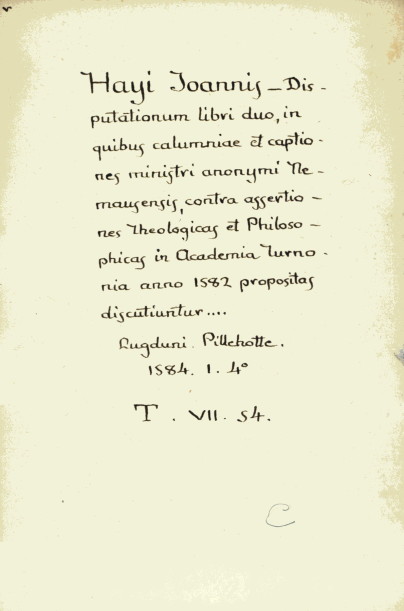 Hayi Joannis — Dis-
putationum libri duo, in
quibus calumniae et captio-
nes ministri anonymi Ne-
mausensis, contra assertio-
nes Theologicas et Philoso-
phicas in Academia Turno-
nia anno 1582 propositas
discutiuntur....
Lugduni. Pillehotte.
1584. 1. 4°
T. VII. 54.
C